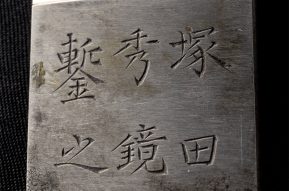 塚田
秀鏡
鏨之